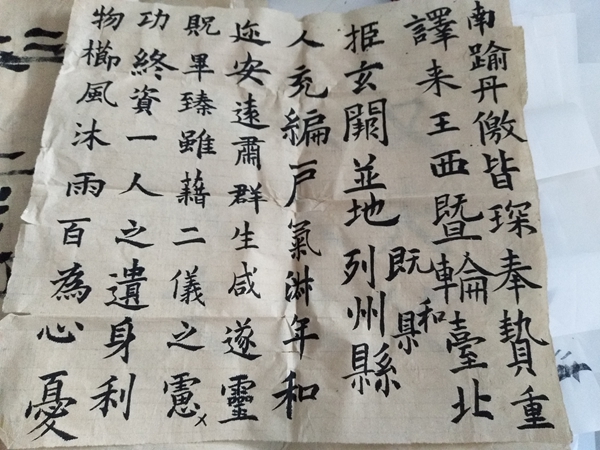 南踰丹徼皆琛奉贄重
譯来王西暨輪臺北
和
既県
拒玄闕並地列州縣
人充編户氣淋年和
迩安遠肅群生咸遂靈
貺畢臻雖藉二儀之慮
功終資一人之遺身利
物櫛風沐雨百為心憂